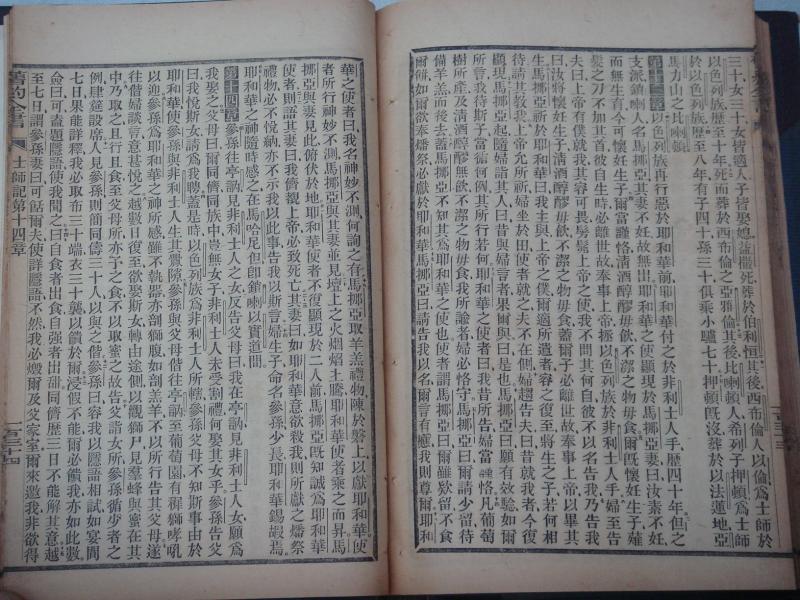 三十女三十女皆適人子皆娶媳死葬於伯利恒其後西布倫人以倫爲士師於
以色列族歷至十年死而葬於西布倫之亞雅倫其後比喇頓人希列子押頓爲士師
於以色列族歷至八年有子四十孫三十俱乘小驢七十押頓旣沒葬於以法蓮地亞
馬力山之比喇頓
第十三章 以色列族再行惡於耶和華前耶和華付之於非利士人手歷四十年但之
支派鎖喇人名馬挪亞其妻不妊故無出耶和華之使顯現於馬挪亞妻曰汝素不妊
而無生育今可懷妊生子爾當謹恪清酒醇醪毋飲不潔之物毋食爾旣懷妊生子薙
髮之刀不加其首彼自生時必離世故奉事上帝拯以色列族於非利士人手婦至告
夫曰上帝有僕就我其容可畏髣髴上帝之使我不問其何自彼不以名告我乃告我
曰汝將懷妊生子清酒醇醪毋飲不潔之物毋食蓋爾子必離世故奉事上帝以畢其
生馬挪亞祈於耶和華曰我主與上帝之僕爾過所遣者容之復至將生之子若何相
待請其教我上帝允所祈婦坐於田使者就之夫不在側婦趨告夫曰昔就我者今復
顯現馬挪亞起隨婦詣其人曰昔與婦言者果爾與曰是也馬挪亞曰願有效驗如爾
所言我待斯子當循何例其所行若何耶和華之使者曰我昔所告婦當謹恪凡葡萄
樹所產及清酒醇醪無飲不潔之物毋食我所諭者婦必恪守馬挪亞曰爾請少留待
備羊羔而後去蓋馬挪亞不知其爲耶和華之使也使者謂馬挪亞曰爾雖欵留不食
爾餅如爾欲奉燔祭必獻於耶和華馬挪亞曰請告我以名爾言有應我則尊爾耶和
華之使者曰我名神妙不測何詢之有馬挪亞取羊羔禮物陳於磐上以獻耶和華使
者所行神妙不測馬挪亞與其妻並見壇上之火烟焰上騰耶和華使者乘之而昇馬
挪亞與妻見此俯伏於地耶和華使者不復顯現於二人前馬挪亞旣知誠爲耶和華
使者則語其妻曰我儕覿上帝必致死亡其妻曰如耶和華意欲殺我則所獻之燔祭
禮物必不悅納亦不示我以此事告我以斯言婦生子命名參孫少長耶和華錫嘏焉
耶和華之神隨時感之在馬哈尼但卽鎖喇以實道間
第十四章 參孫往亭訥見非利士人之女反告父母曰我在亭訥見非利士人女願爲
我娶之父母曰爾同儕同族中豈無女子非利士人未受割禮何娶其女乎參孫告父
曰我悅斯女請爲我聘蓋是時以色列族爲非利士人所轄參孫父母不知斯事由於
耶和華使參孫與非利士人生其釁隙參孫與父母偕往亭訥至葡萄園有稺獅咆吼
以迎參孫爲耶和華之神所感雖不執器亦剖獅腹如剖羔羊不以所行告其父母遂
往偕婦談言意甚悅之越數日復至欲娶斯女轉由途側以觀獅尸見羣蜂與蜜在其
中乃取之且行且食至父母所亦予之食不以取蜜之故告父詣女所參孫循步者之
例肆筵設席人見參孫則簡同儔三十人以與之偕參孫曰容我以隱語相試如宴間
七日果能詳釋我必取布三十端衣三十襲以饋於爾浸假不能爾必饋我亦如此數
僉曰可盍題隱語使我聞之曰食自食者出食自強者出甜同儕歷三日不能解其意越
至七日謂參孫妻曰可餂爾夫使詳隱語不然我必燬爾及父家室爾來邀我非欲得
舊約全書 士師記第十四章 一百三十四